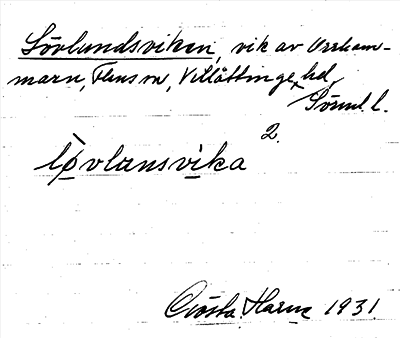 Lövlundsviken, vik av Orrham-
marn, Flens sn, Villåttinge hd,
Sörml. l.
2.
lǫ̀vlansvi̱ka
Gösta Harne 1931